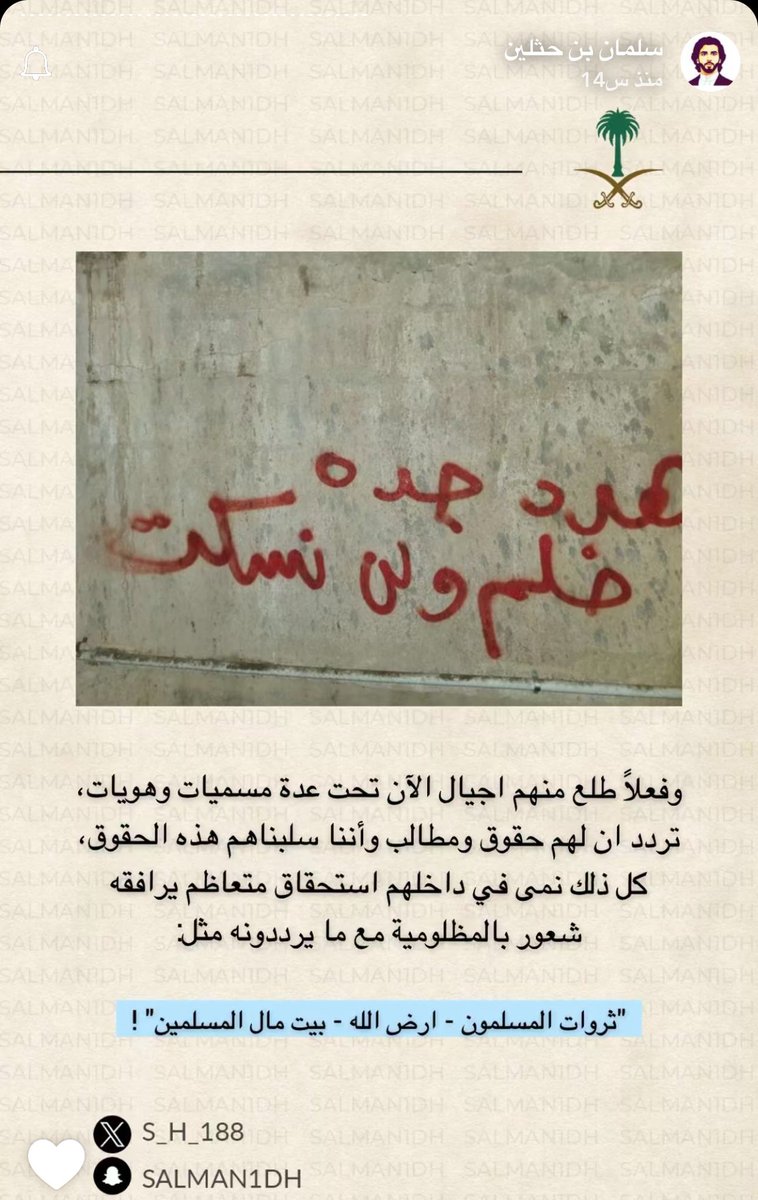 سلمان بن حثلين
منذ س14
هدد جده
ضلم ولن نسكت
وفعلاً طلع منهم اجيال الآن تحت عدة مسميات وهويات،
تردد ان لهم حقوق ومطالب وأننا سلبناهم هذه الحقوق،
كل ذلك نمى في داخلهم استحقاق متعاظم يرافقه
شعور بالمظلومية مع ما يرددونه مثل:
"ثروات المسلمون - ارض الله - بيت مال المسلمين" !
S_H_188
SALMAN1DH